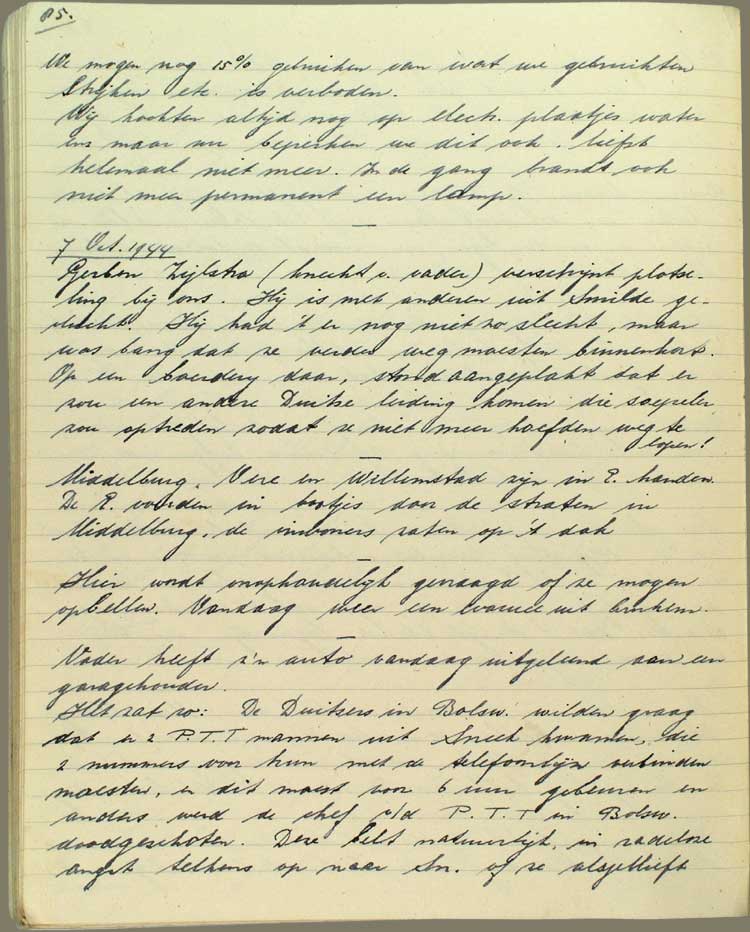 85.
We mogen nog 15% gebruiken van wat we gebruikten
Strijken etc. is verboden.
Wij kookten altijd nog op electr. plaatjes water
enz maar nu beperken we dit ook. liefst
helemaal niet meer. In de gang brandt ook
niet meer permanent een lamp.
7 Oct. 1944
Gerben Zijlstra (knecht v. vader) verschijnt plotse-
ling bij ons. Hij is met anderen uit Smilde ge-
vlucht. Hij had 't er nog niet zo slecht, maar
was bang dat ze verder weg moesten binnenkort.
Op een boerderij daar, stond aangeplakt dat er
zou een andere Duitse leiding komen die soepeler
zou optreden zodat ze niet meer hoefden weg te
lopen!
Middelburg, Vere en Willemstad zijn in E. handen.
De E. voeren in bootjes door de straten in
Middelburg, de inwoners zaten op 't dak
Hier wordt onophoudelijk gevraagd of ze mogen
opbellen. Vandaag weer een evacué uit Arnhem.
Vader heeft z'n auto vandaag uitgeleend aan een
garagehouder.
Het zat zo: De Duitsers in Bolsw. wilden graag
dat er 2 P.T.T mannen uit Sneek kwamen, die
2 nummers voor hun met de telefoonlijn verbinden
moesten, en dit moest voor 6 uur gebeuren en
anders werd de chef v/d P.T.T in Bolsw.
doodgeschoten. Deze belt natuurlijk, in radeloze
angst telkens op naar Sn. of ze alsjeblieft